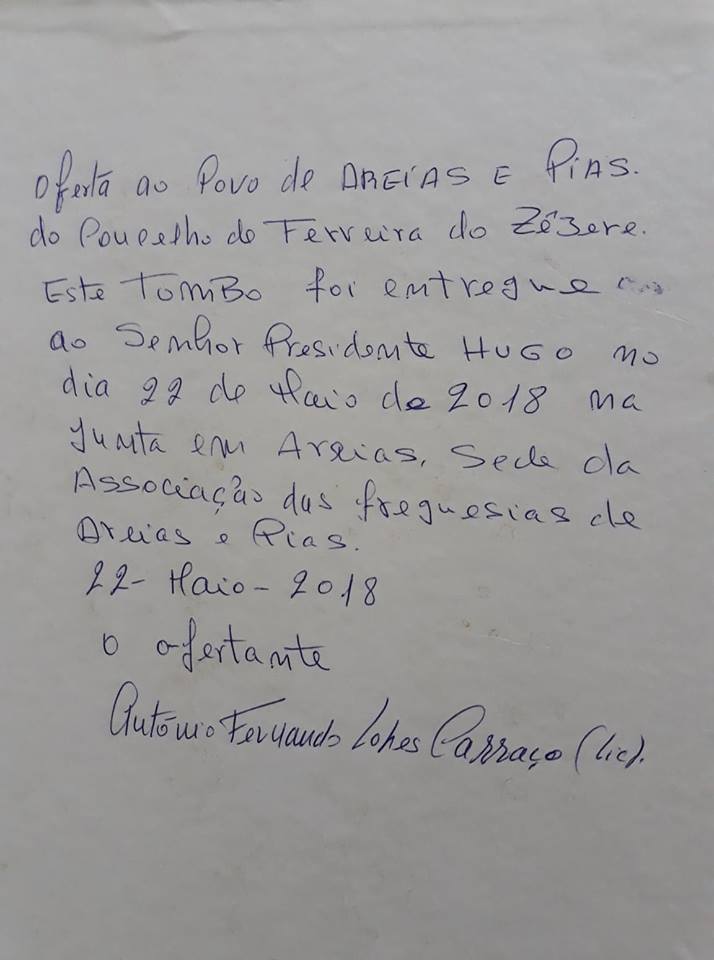 Ofertá ao Povo de AREÍAS E PÍAS.
do Concelho de Ferreira do Zêzere.
Este TOMBO foi entregue
ao Senhor Presidente HUGO no
dia 22 de Maio de 2018 na
Junta em Areias, Sede da
Associação das freguesias de
Areias e Pias.
22- Maio- 2018
O ofertante
António Fernando Lopes Carraço (lic).